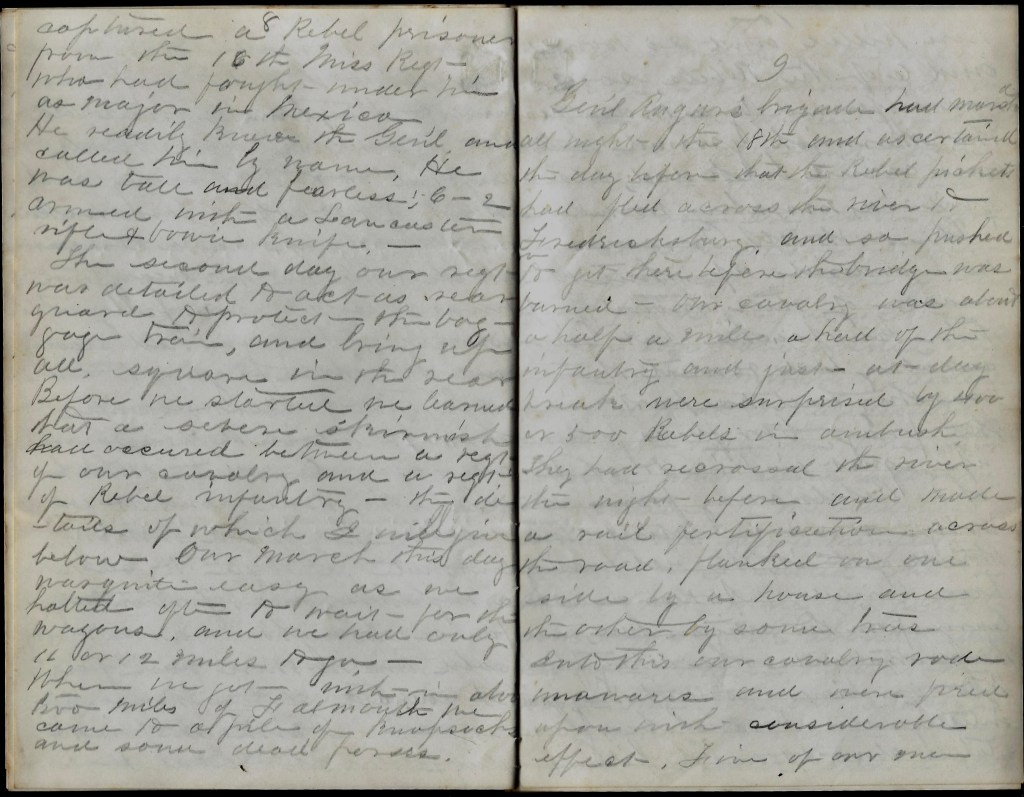 8
captured a Rebel prisoner
from the 18th Miss Regt –
who had fought under him
as major in Mexico
He readily knew the Genl, and
called him by name, He
was tall and fearless; 6-2
armed with a Lancaster
rifle & bowie knife. –
The second day our regt
was detailed to act as rear
guard to protect the bag-
gage train, and bring up
all, square in the rear
Before we started we learned
that a severe skirmish
had occured between a regt
of our cavalry and a regt
of Rebel infantry – the de
-tails of which I will give
below Our march this day
was quite easy as we
halted often to wait for the
wagons, and we had only
11 or 12 miles to go –
When we got with in abo
two miles of Falmouth we
came to a pile of knapsacks
and some dead horses.
9
Genl Augurs brigade had marchd
all night the 18th and ascertaind
the day before that the Rebel pickets
had fled across the river to
Fredricksburg and so pushed
to get there before the bridge was
burned – our cavalry was about
a half a mile a head of the
infantry and just at day
break were surprised by 400
or 500 Rebels in ambush.
They had recrossed the river
the night before and made
a rail fortification across
the road, flanked on one
side by a house and
the other by some trees
Into this our cavalry rode
unawares and were fired
upon with considerable
effect. Five of our men